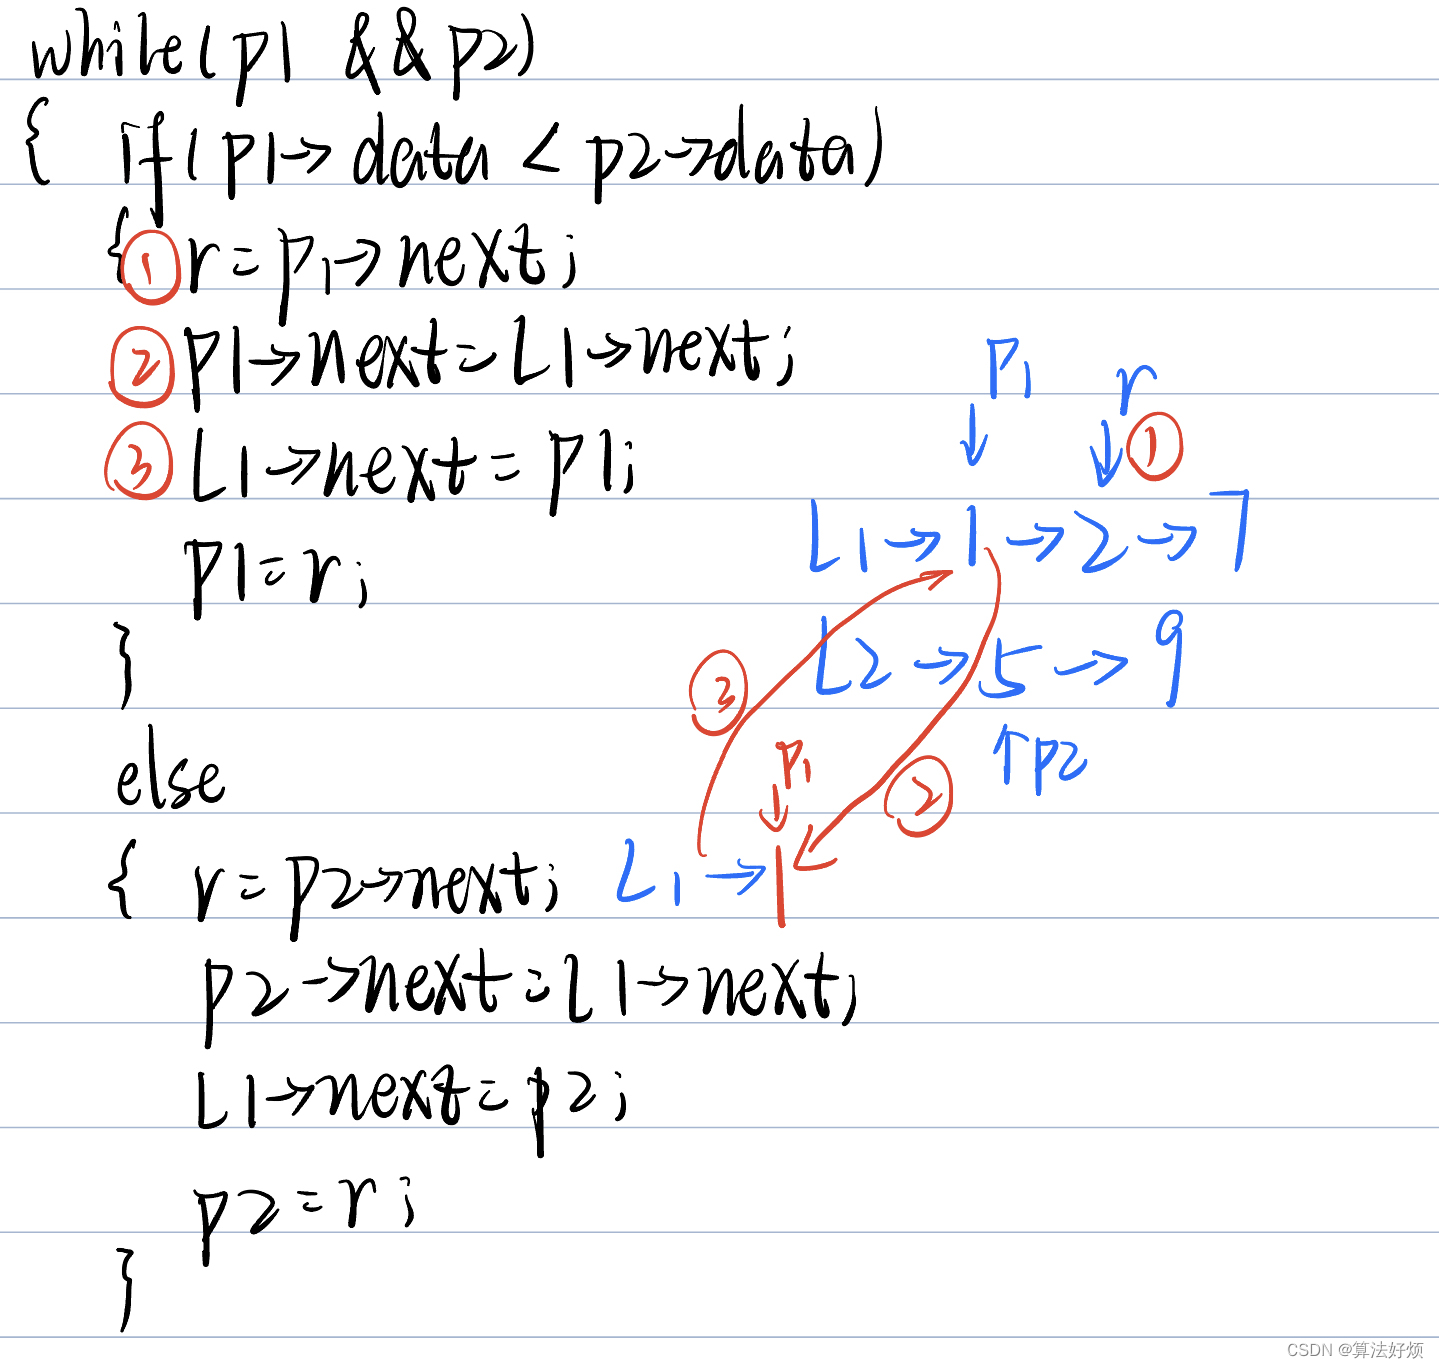 while(p1 && p2)
{ if(p1→data < p2→data)
{ ① r=p1→next;
② p1→next=L1→next;
③ L1→next=p1;
p1=r;
}
else
{ r=p2→next;
p2→next=L1→next;
L1→next=p2;
p2=r;
}
p1
↓
r
↓ ①
L1→1→2→7
L2→5→9
↑p2
③
②
p1
↓
L1→1
CSDN @算法好烦